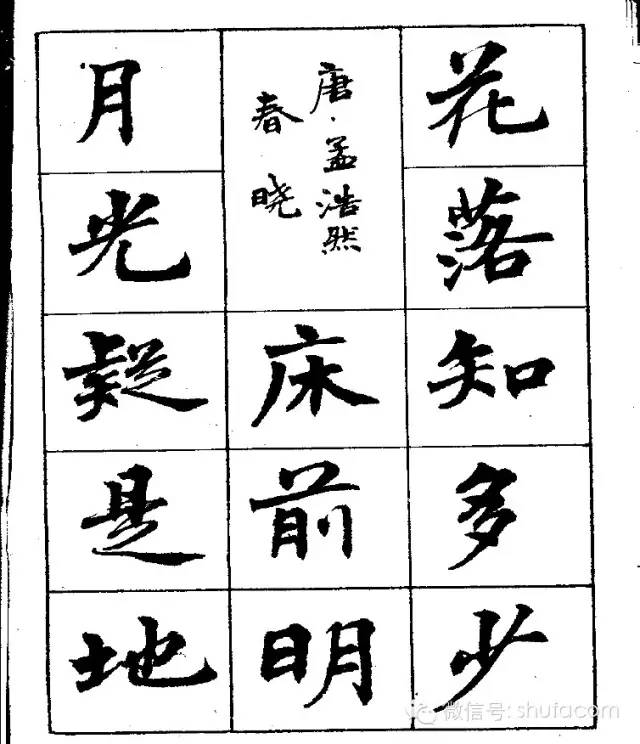 花落知多少
唐·孟浩然
春晓
床前明
月光疑是地
微信号: shufacom